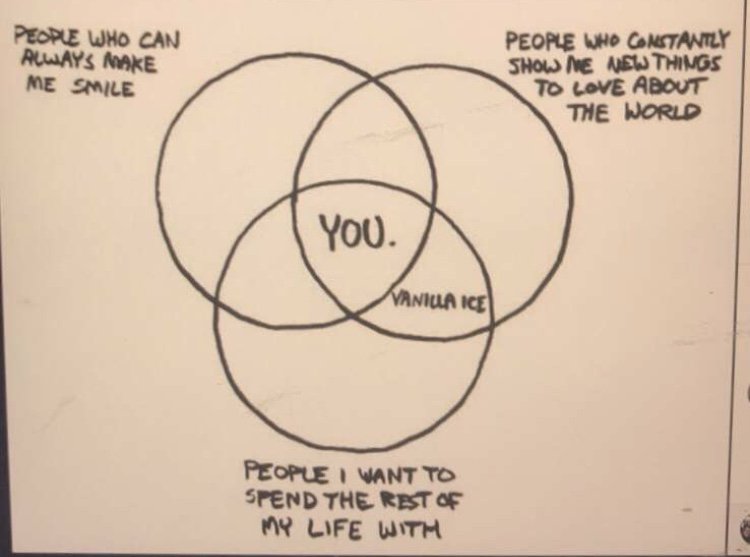 PEOPLE WHO CAN
ALWAYS MAKE
ME SMILE
PEOPLE WHO CONSTANTLY
SHOW ME NEW THINGS
TO LOVE ABOUT
THE WORLD
YOU.
VANILLA ICE
PEOPLE I WANT TO
SPEND THE REST OF
MY LIFE WITH